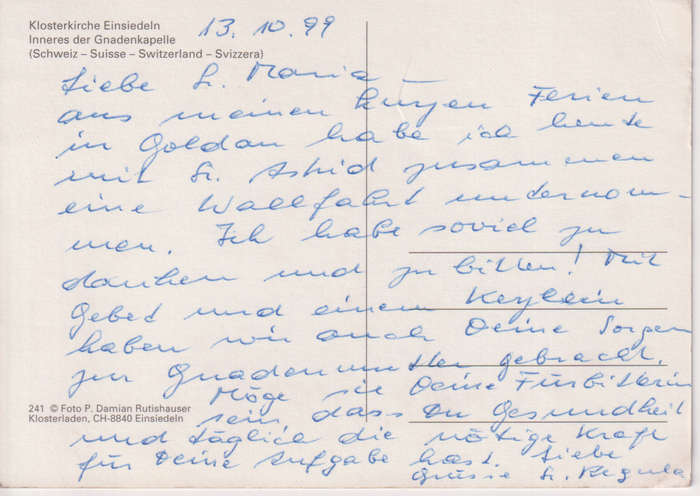 Klosterkirche Einsiedeln
Inneres der Gnadenkapelle
(Schweiz – Suisse – Switzerland – Svizzera)
13.10.99
Liebe Sr. Maria –
aus meinen kurzen Ferien
in Goldau habe ich heute
mit Sr. Astrid zusammen
eine Wallfahrt unternom-
men. Ich habe soviel zu
danken und zu bitten! Mit
Gebet und einem Kerzlein
haben wir auch Deine Sorgen
zur Gnadenmutter gebracht.
Möge sie Deine Fürbitterin
sein, dass Du Gesundheit
und täglich die nötige Kraft
für Deine Aufgabe hast. Liebe
Grüsse Sr. Regula
241 © Foto P. Damian Rutishauser
Klosterladen, CH-8840 Einsiedeln